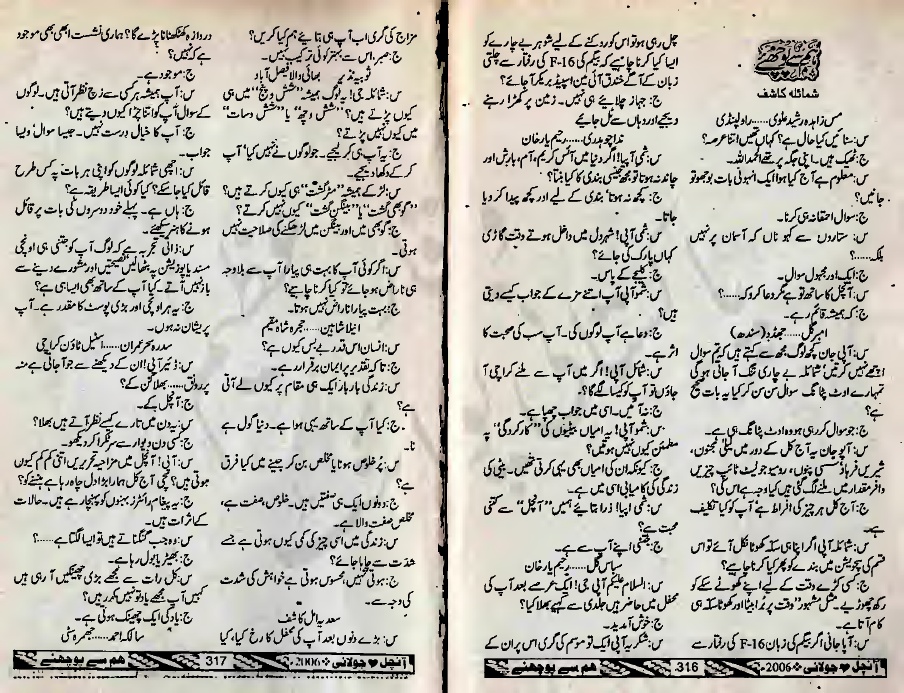 ہم سے پوچھئے
شمائلہ کاشف
مس زاہدہ رشید علوی......راولپنڈی
س: سنائیں کیا حال ہے؟ کہاں تھیں اتنا عرصہ؟
ج: ٹھیک ہیں۔ اپنی جگہ پر تھے الحمد اللہ۔
س: معلوم ہے آج کیا ہوا ایک انہونی بات بوجھو تو
جانیں؟
ج: سوال احمقانہ ہی کرنا۔
س: ستاروں سے کہو ناں کہ آسمان پر نہیں
بلکہ.....؟
ج: ایک اور مجہول سوال۔
س: آنچل کا ساتھ تو ہے مگر دعا کرو کہ.....؟
ج: کہ ہمیشہ قائم رہے۔
امبر گل......جھڈو (سندھ)
س: آپی جان کچھ لوگ مجھ سے کہتے ہیں کہ تم سوال
اچھے نہیں کرتیں شمائلہ بے چاری تنگ آ جاتی ہو گی
تمہارے اوٹ پٹانگ سوال سن سن کر کیا یہ بات سچ
ہے؟
ج: جو سوال کر رہی ہو وہ اوٹ پٹانگ ہی ہے۔
س: آپو جان یہ آج کل کے دور میں لیلیٰ مجنوں،
شیریں فرہاد سسی پنوں، رومیو جولیٹ ٹائپ چیزیں
وافر مقدار میں ملنے لگ گئی ہیں کیا وجہ ہے اس کی؟
ج: آج کل ہر چیز کی افراط ہے آپ کو کیا تکلیف
ہے۔
س: شمائلہ آپی اگر اپنا ہی سکہ کھوٹا نکل آئے تو اس
قسم کی سچویشن میں بندے کو پھر کیا کرنا چاہیے؟
ج: کسی کڑے وقت کے لیے اپنے کھوٹے سکے کو
رکھ چھوڑیے۔ مثل مشہور وقت پر برا بیٹا اور کھوٹا سکہ ہی
کام آتا ہے۔
س: آپا جانی اگر بیگم کی زبان F-16 کی رفتار سے
چل رہی ہو تو اس کو روکنے کے لیے شوہر بے چارے کو
ایسا کیا کرنا چاہیے کہ بیگم کی F-16 کی رفتار سے چلتی
زبان کے آگے خندق آئی مین اسپیڈ بریکر آ جائے؟
ج: جہاز چلائیے ہی نہیں۔ زمین پر کھڑا رہنے
دیجیے اور وہاں سے ٹل جائیے
ندا چوہدری......رحیم یار خان
س: شمی آپیا! اگر دنیا میں آئس کریم، آم، بارش اور
چاند نہ ہوتا تو مجھ جیسی بندی کا کیا بنتا؟
ج: کچھ نہ ہوتا' بندی کے لیے اور کچھ پیدا کر دیا
جاتا۔
س: شمی آپی! شہر دل میں داخل ہوتے وقت گاڑی
کہاں پارک کی جائے؟
ج: کلیجے کے پاس۔
س: شمو آپی آپ اتنے مزے کے جواب کیسے دیتی
ہیں؟
ج: دعا ہے آپ لوگوں کی۔ آپ سب کی محبت کا
اثر ہے۔
س: شمائل آپی! اگر میں آپ سے ملنے کراچی آ
جاؤں تو آپ کو کیسا لگے گا؟
ج: نہ آئیں۔ اسی میں جواب چھپا ہے۔
س: شمو آپی! یہ امیاں بیٹیوں کی ''کارکردگی'' پہ
مطمئن کیوں نہیں ہوتیں؟
ج: کیونکہ ان کی امیاں بھی یہی کرتی تھیں۔ بیٹی کی
زندگی کی کامیابی اسی میں ہے۔
س: شمی اپیا! ذرا بتایئے ہمیں ''آنچل'' سے کتنی
محبت ہے؟
ج: جتنی اپنے آپ سے ہے۔
سباس گل......رحیم یار خان
س: السلام علیکم آپی جی! ایک عرصے بعد آپ کی
محفل میں حاضر ہیں جلدی سے کہیے بھلا کیا؟
ج: خوش آمدید۔
س: شکریہ آپی ایک تو موسم کی گری اس پر ان کے
آنچل جولائی 2006ء 316 ہم سے پوچھئے
مزاج کی گرمی اب آپ ہی بتایئے ہم کیا کریں؟
ج: صبر، اس سے بہتر کوئی ترکیب نہیں۔
ثوبیہ نذیر بھائی والا فیصل آباد
س: شمائلہ جی! یہ لوگ ہمیشہ ''شش و پنج'' میں ہی
کیوں پڑتے ہیں؟ ''شش و چھ'' یا ''شش و سات''
میں کیوں نہیں پڑتے؟
ج: یہ آپ ہی کر لیجیے۔ جو لوگوں نے نہیں کیا' آپ
کر کے دکھا دیجیے۔
س: لڑکے ہمیشہ ''مٹر گشت'' ہی کیوں کرتے ہیں؟
''گوبھی گشت'' یا ''بینگن گشت'' کیوں نہیں کرتے؟
ج: گوبھی میں اور بینگن میں لڑھکنے کی صلاحیت نہیں
ہوتی۔
س: اگر کوئی آپ کا بہت ہی پیارا آپ سے بلاوجہ
ہی ناراض ہو جائے تو کیا کرنا چاہیے؟
ج: بہت پیارا ناراض نہیں ہوتا۔
انیلا شاہین......حجرہ شاہ مقیم
س: انسان اس قدر بے بس کیوں ہے؟
ج: تاکہ تقدیر پر ایمان برقرار رہے۔
س: زندگی بار بار ایک ہی مقام پر کیوں لے آتی
ہے؟
ج: کیا آپ کے ساتھ یہی ہوا ہے۔ دنیا گول ہے
نا۔
س: پُر خلوص ہونا یا مخلص بن کر جینے میں کیا فرق
ہے؟
ج: دونوں ایک ہی صفتیں ہیں۔ خلوص، صفت ہے،
مخلص صفت والا ہے۔
س: زندگی میں اسی چیز کی کمی کیوں ہوتی ہے جسے
شدت سے چاہا جائے؟
ج: ہوتی نہیں محسوس ہوتی ہے خواہش کی شدت
کی وجہ سے۔
سعدیہ امل کاشف
س: بڑے دنوں بعد آپ کی محفل کا رخ کیا، کیا
دروازہ کھٹکھٹانا پڑے گا؟ ہماری نشست ابھی بھی موجود
ہے کہ نہیں؟
ج: موجود ہے۔
س: آپ ہمیشہ ہر کسی سے زچ نظر آتی ہیں۔ لوگوں
کے سوال آپ کو اتنا چڑا کیوں دیتے ہیں؟
ج: آپ کا خیال درست نہیں۔ جیسا سوال' ویسا
جواب۔
س: اچھی شمائلہ لوگوں کو اپنی ہر بات پہ کس طرح
قائل کیا جا سکے؟ کیا کوئی ایسا طریقہ ہے؟
ج: ہاں ہے۔ پہلے خود دوسروں کی بات پر قائل
ہونے کا ہنر سیکھئے۔
س: ذاتی تجربہ ہے کہ لوگ آپ کو جتنی ہی اونچی
مسند یا پوزیشن پہ بٹھا لیں نصیحتیں اور مشورے دینے سے
باز نہیں آتے۔ کیا آپ کے ساتھ بھی ایسا ہی ہے؟
ج: یہ ہر اونچی اور بڑی پوسٹ کا مقدر ہے۔ آپ
پریشان نہ ہوں۔
سدرہ سحر عمران......اسٹیل ٹاؤن کراچی
س: ڈیئر آپی! ان کے دیکھنے سے جو آ جاتی ہے منہ
پر رونق...... بھلا کن کے؟
ج: آنچل کے۔
س: یہ دن میں تارے کیسے نظر آتے ہیں بھلا؟
ج: کسی دن دیوار سے سر ٹکرا کر دیکھو۔
س: آپی! آنچل میں مزاحیہ تحریریں اتنی کم کم کیوں
ہوتی ہیں؟ سچی آج کل ہمارا بڑا دل چاہ رہا ہے ہنسنے کو؟
ج: یہ پیغام رائٹرز بہنوں کو پہنچا رہے ہیں۔ حالات
کے اثرات ہیں۔
س: وہ جب گنگناتے ہیں تو ایسا لگتا ہے.....؟
ج: بھیڑیا بول رہا ہے۔
س: کل رات سے مجھے بڑی چھینکیں آ رہی ہیں
کہیں آپ مجھے یاد تو نہیں کر رہیں؟
ج: یاد کی ایک چھینک ہوتی ہے۔
سائلہ احمد......جھمرہ سٹی
آنچل جولائی 2006ء 317 ہم سے پوچھئے